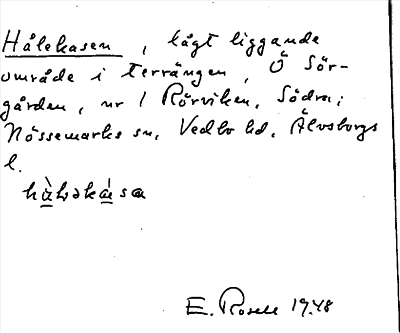 Hålekasen, lågt liggande
område i terrängen, Ö Sör-
gården, nr 1 Rörviken, Södra;
Nössemarks sn, Vedbo hd, Älvsborgs
l.
E. Rosell 1948